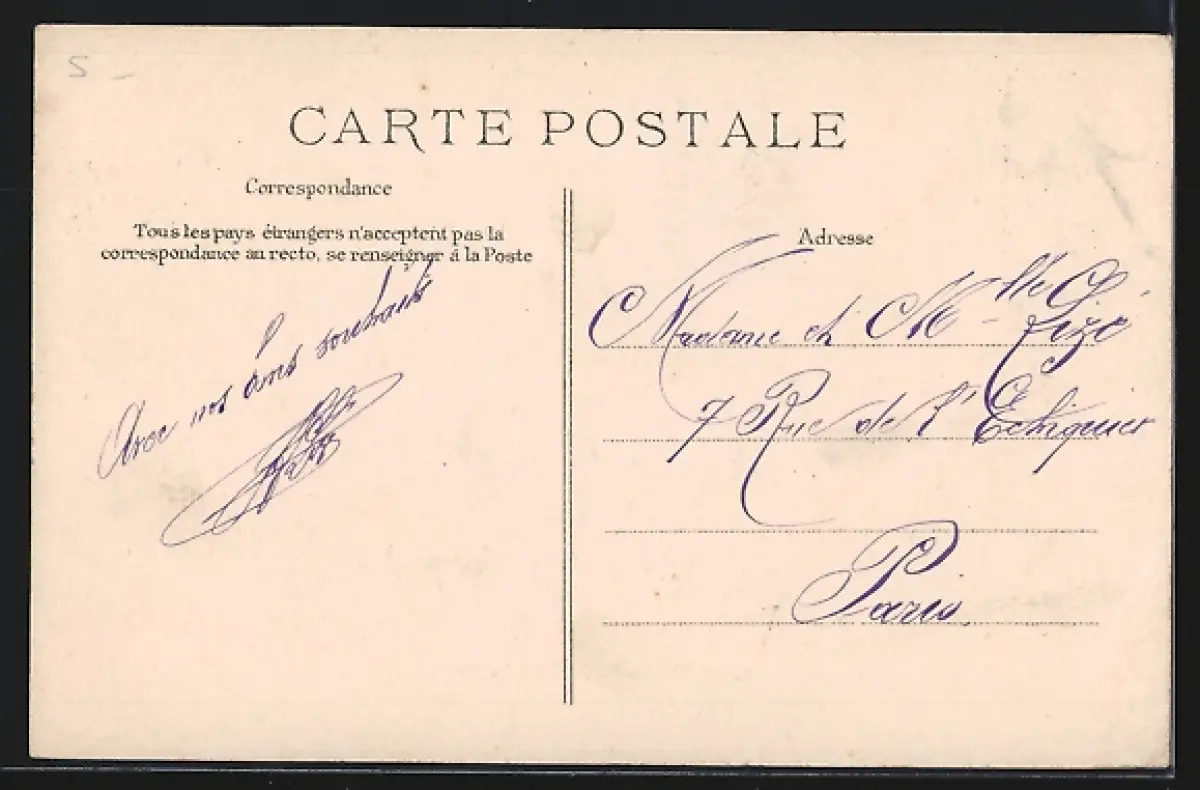 5
CARTE POSTALE
Correspondance
Tous les pays étrangers n'acceptent pas la
correspondance au recto, se renseigner à la Poste
Avec nos bons souhaits
Adresse
Madame et Mlle
7 Rue de l'Echiquier
Paris